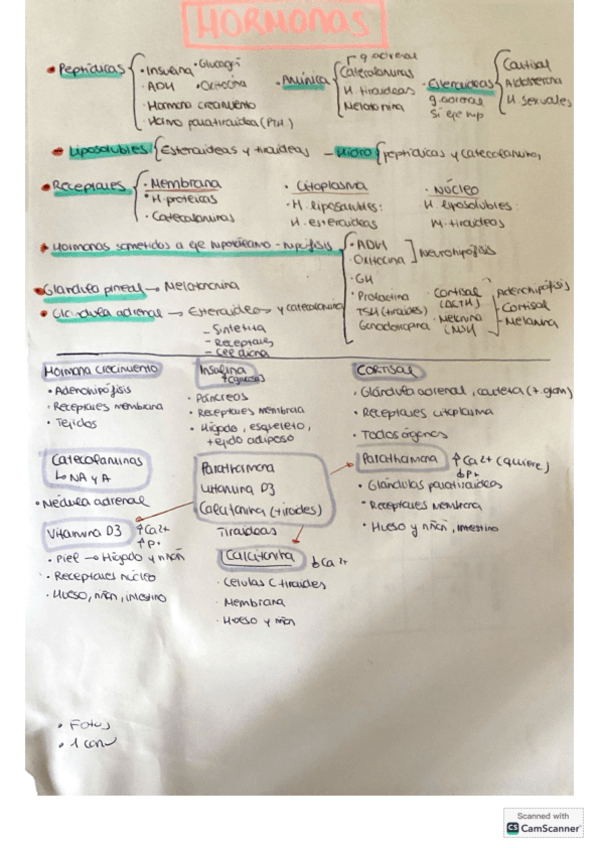 HORMONAS
• Peptídicas { • Insulina • Glucagón
• ADH • Oxitocina
• Hormona crecimiento
• Hormo paratiroidea (PTH)
• Amínica { g. adrenal
Catecolaminas
H. tiroideas
Melatonina
- Esteroideas { Cortisol
g. adrenal Aldosterona
Si eje hip H sexuales
• Liposolubles { Esteroideas y tiroideas - Hidro { peptídicas y catecolaminas
• Receptores { • Membrana
• H. proteicas
• Catecolaminas
• Citoplasma
• H. liposolubles:
H. esteroideas
• Núcleo
H liposolubles:
H. tiroideas
• Hormonas sometidas a eje hipotálamo - hipófisis { • ADH
• Oxitocina ] Neurohipófisis
• GH
• Prolactina
TSH (tiroides)
Gonadotropina
• Cortisol (ACTH)
• Melanina (MSH)
Adenohipófisis
- Cortisol
- Melanina
• Glándula pineal → Melatonina
• Glándula adrenal → Esteroideas y catecolaminas
- Síntesis
- Receptores
- Cel diana
Hormona crecimiento
• Adenohipófisis
• Receptores membrana
• Tejidos
Insulina
• Páncreas
• Receptores membrana
• Hígado, esqueleto,
tejido adiposo
Cortisol
• Glándula adrenal, corteza (+ glom)
• Receptores citoplasma
• Todos órganos
Catecolaminas
↳ NA y A
• Médula adrenal
Parathormona
Vitamina D3
Calcitonina (tiroides)
Tiroideas
Parathormona ↑ Ca2+ (quiere)
↓ P+
• Glándulas paratiroideas
• Receptores Membrana
• Hueso y riñón, intestino
Vitamina D3 ↑ Ca2+
↑ P+
• Piel → Hígado y riñón
• Receptores núcleo
• Hueso, riñón, intestino
Calcitonina ↓ Ca2+
• Células C tiroides
• Membrana
• Hueso y riñón
• Fotos
• 1 con
Scanned with
CS CamScanner